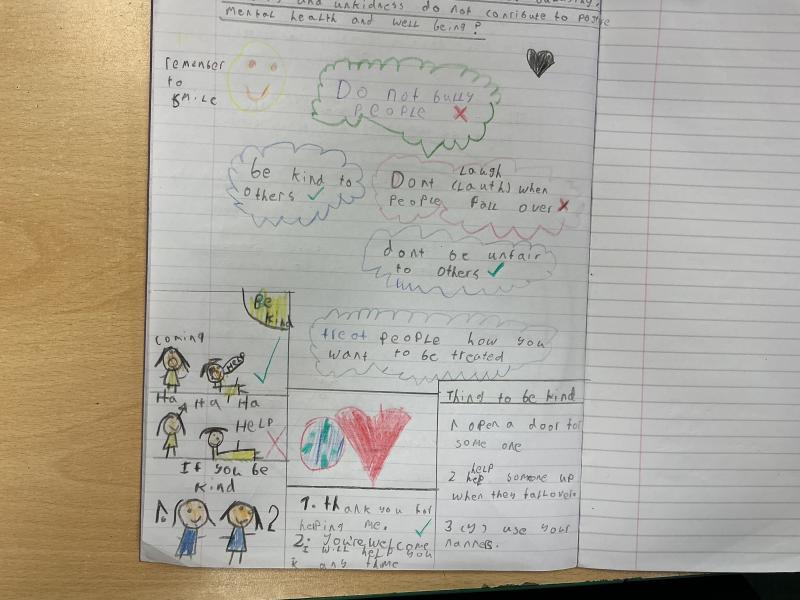 and unkindness do not contribute to positive
mental health and well being?
remember
to
smile
Do not bully
people
be kind to
others
Laugh
Dont (Lauth) when
people fall over
dont be unfair
to others
Be
kind
treat people how you
want to be treated
coming
HELP
Ha Ha Ha
HELP
If you be
kind
1.
2
1. thank you for
helping me.
2: You're welcome
I will help you
any thime
Thing to be kind
1 open a door for
some one
help
2 hep someone up
when they fallover.
3 (y) use your
manners.